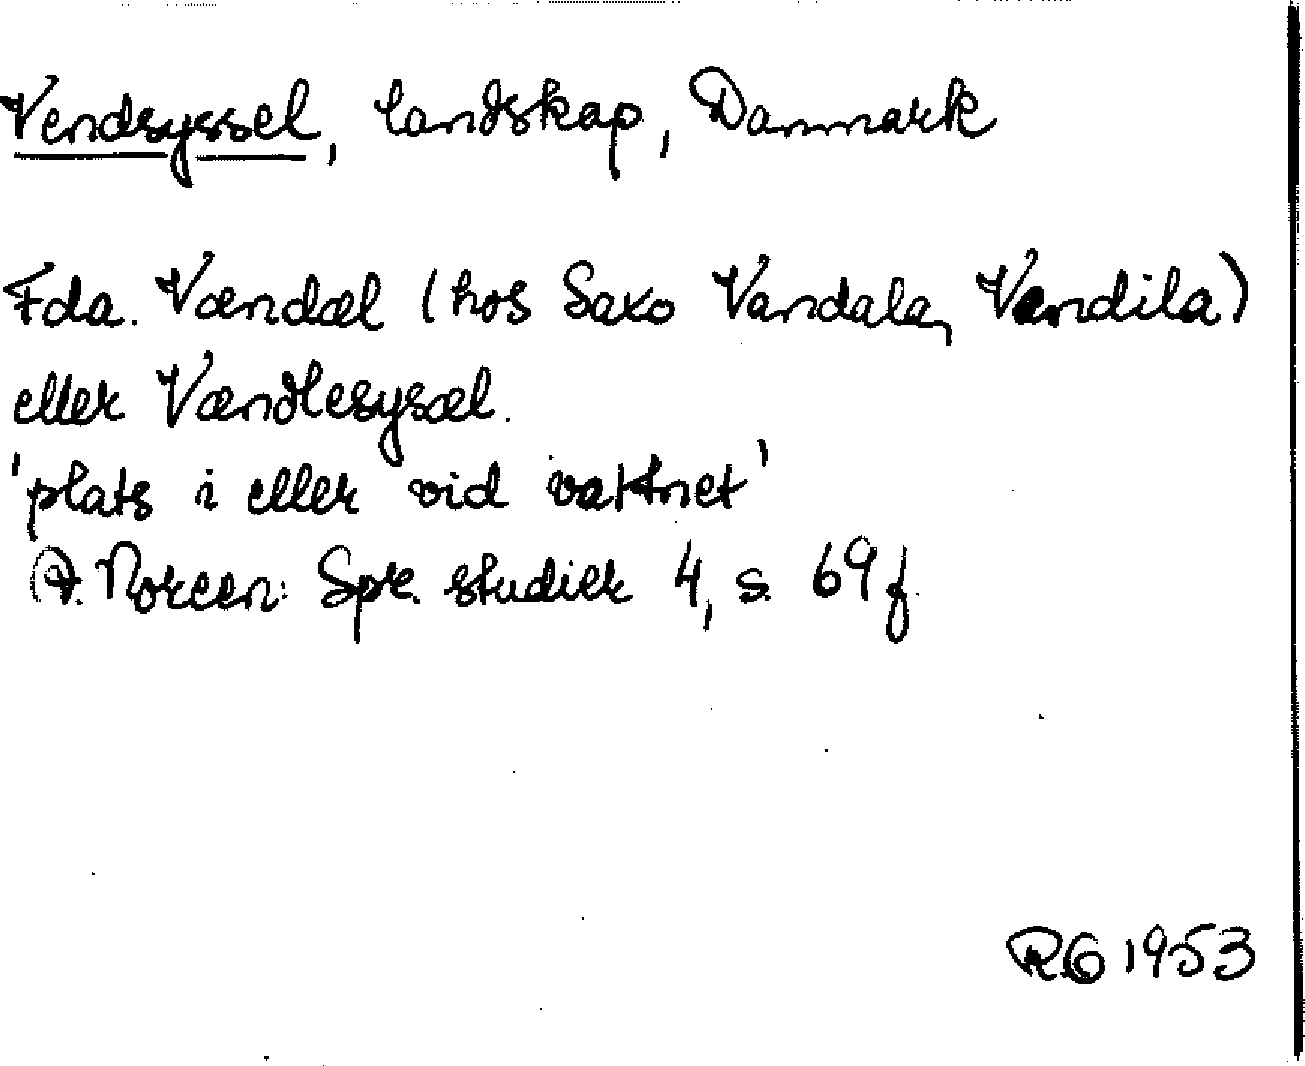 Vendsyssel, landskap, Danmark
Fda. Vændæl (hos Saxo Vandala, Vendila)
eller Vændlesysæl.
'plats i eller vid vattnet'
A. Noreen: Spr. studier 4, s. 69 f.
RG 1953